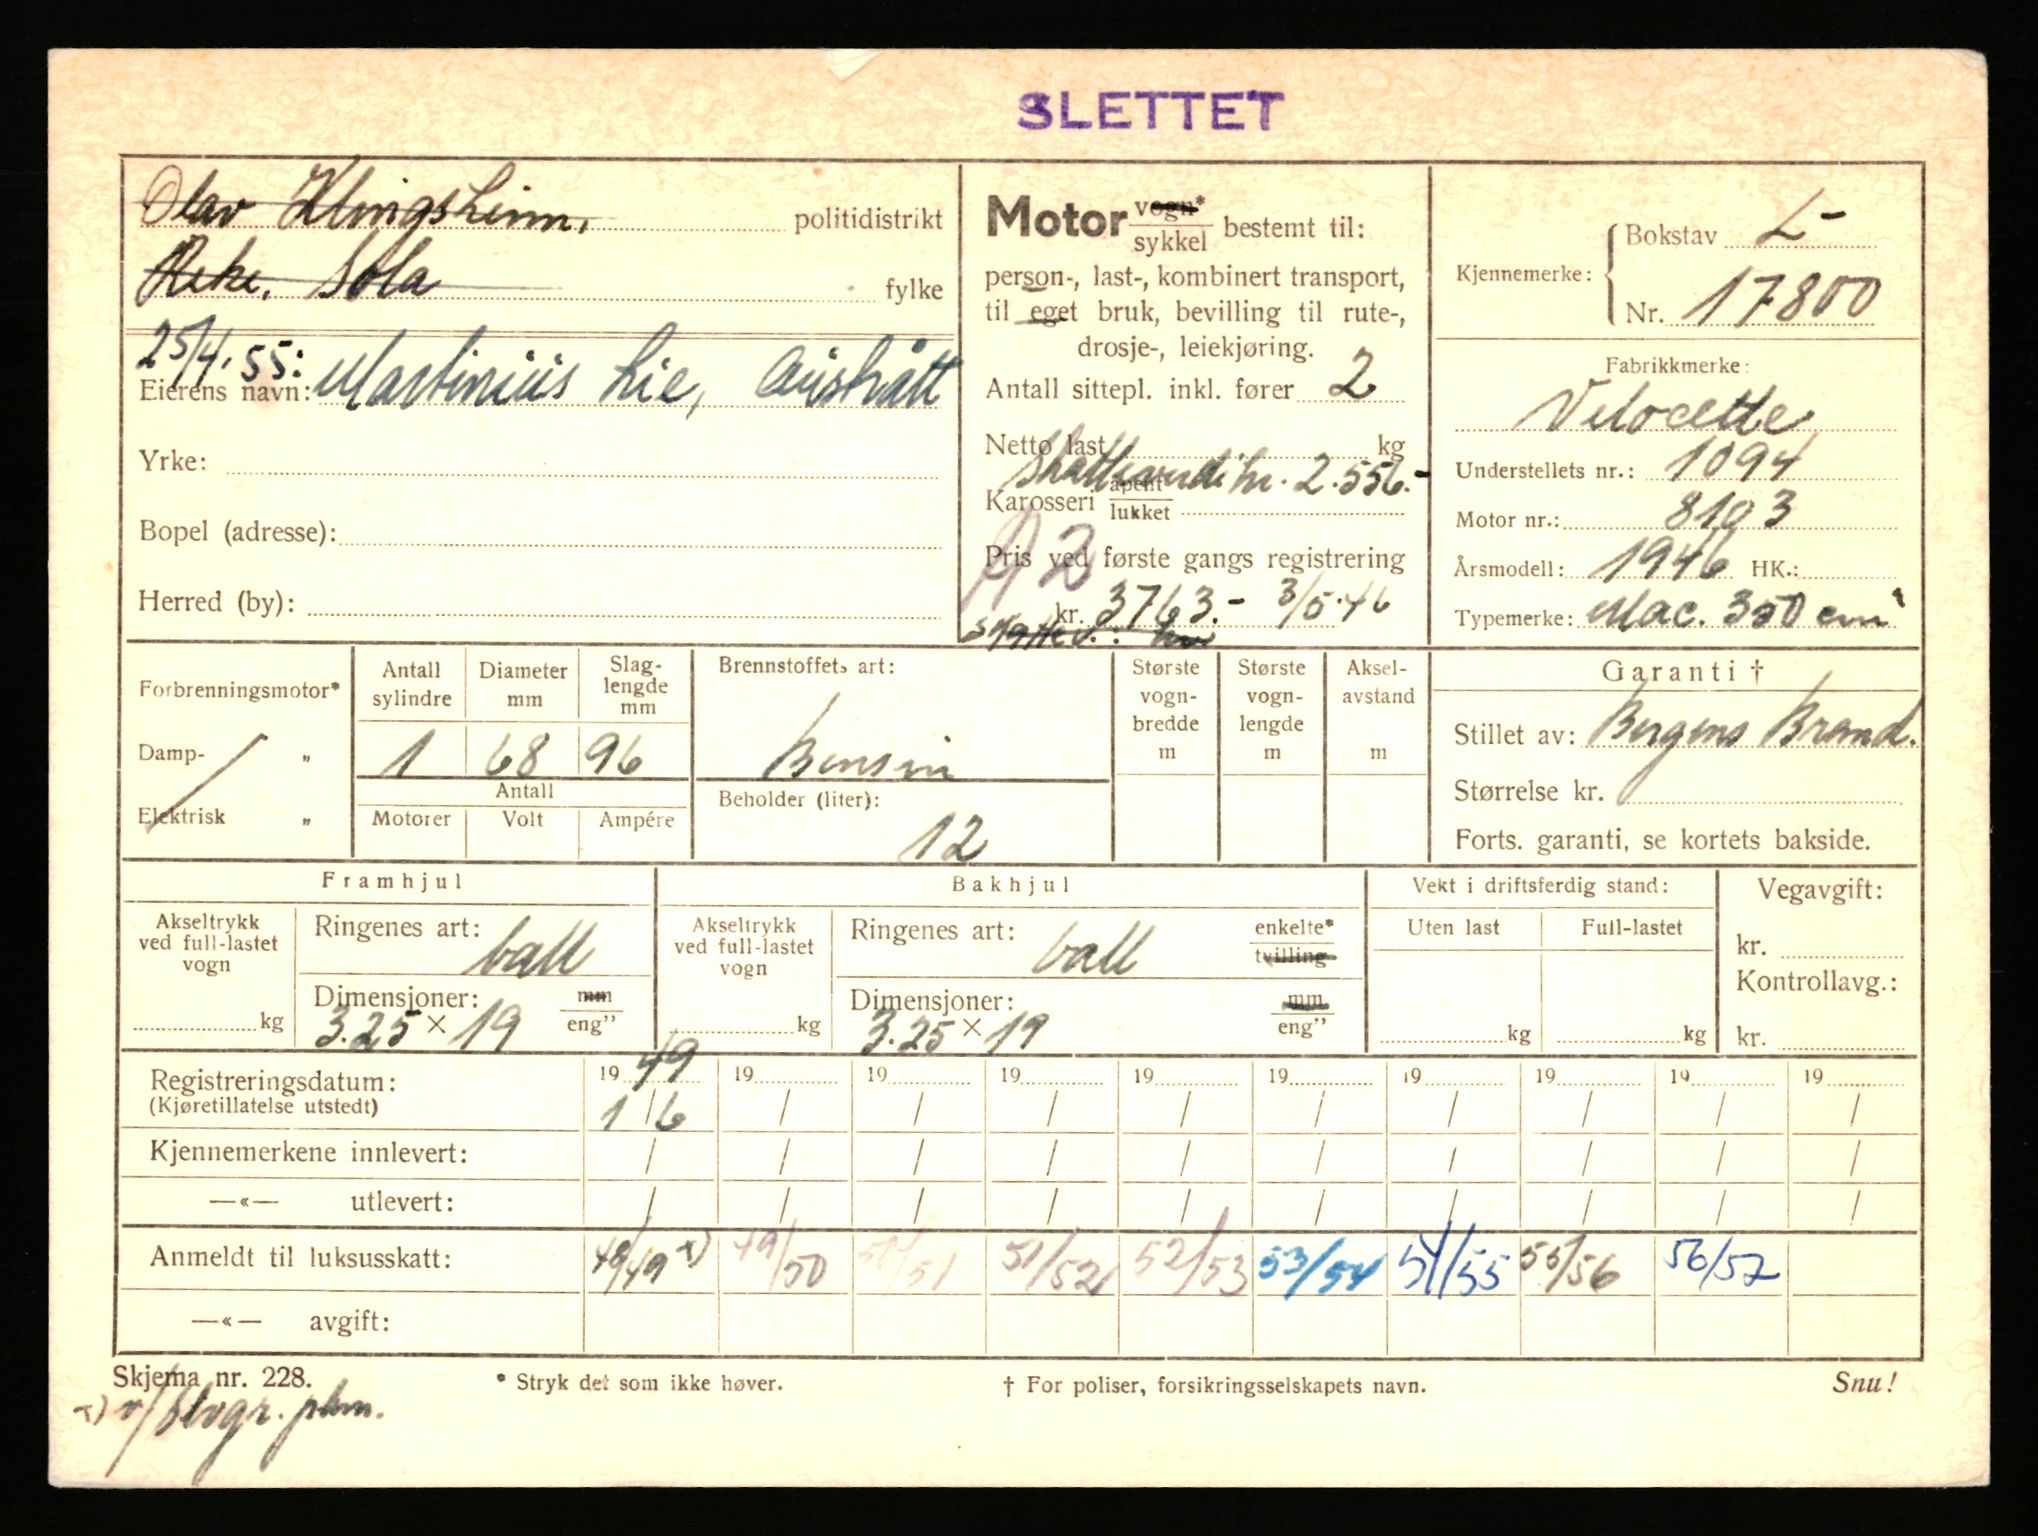 SLETTET
Olav Klingsheim, politidistrikt
Reke, Sola fylke
25/4.55:
Eierens navn: Martinius Lie, Austrått
Yrke:
Bopel (adresse):
Herred (by):
Motor vogn* sykkel bestemt til:
person-, last-, kombinert transport,
til eget bruk, bevilling til rute-,
drosje-, leiekjøring.
Antall sittepl. inkl. fører 2
Netto last kg
Skatteverdi kr. 2.556.-
Karosseri åpent lukket
Pris ved første gangs registrering
kr. 3763.- 3/5.46
Kjennemerke: Bokstav L-
Nr. 17800
Fabrikkmerke:
Velocette
Understellets nr.: 1094
Motor nr.: 8103
Årsmodell: 1946 HK.:
Typemerke: Mac. 350 cm³
Forbrenningsmotor*
Damp- "
Elektrisk "
Antall sylindre Diameter mm Slag-lengde mm
1 68 96
Antall
Motorer Volt Ampére
Brennstoffets art:
Bensin
Beholder (liter):
12
Største vogn-bredde m
Største vogn-lengde m
Aksel-avstand m
Garanti †
Stillet av: Bergens Brand.
Størrelse kr.
Forts. garanti, se kortets bakside.
Framhjul
Akseltrykk ved full-lastet vogn
kg
Ringenes art: ball
Dimensjoner: mm eng"
3.25 × 19
Bakhjul
Akseltrykk ved full-lastet vogn
kg
Ringenes art: ball enkelte* tvilling
Dimensjoner: mm eng"
3.25 × 19
Vekt i driftsferdig stand:
Uten last Full-lastet
kg kg
Vegavgift:
kr.
Kontrollavg.:
kr.
Registreringsdatum: 1949 19 19 19 19 19 19 19 19 19
(Kjøretillatelse utstedt) 1/6 / / / / / / / / /
Kjennemerkene innlevert: / / / / / / / / / /
—«— utlevert: / / / / / / / / / /
Anmeldt til luksusskatt: 48/49 x) 49/50 50/51 51/52 52/53 53/54 54/55 55/56 56/57
—«— avgift:
Skjema nr. 228. * Stryk det som ikke høver. † For poliser, forsikringsselskapets navn. Snu!